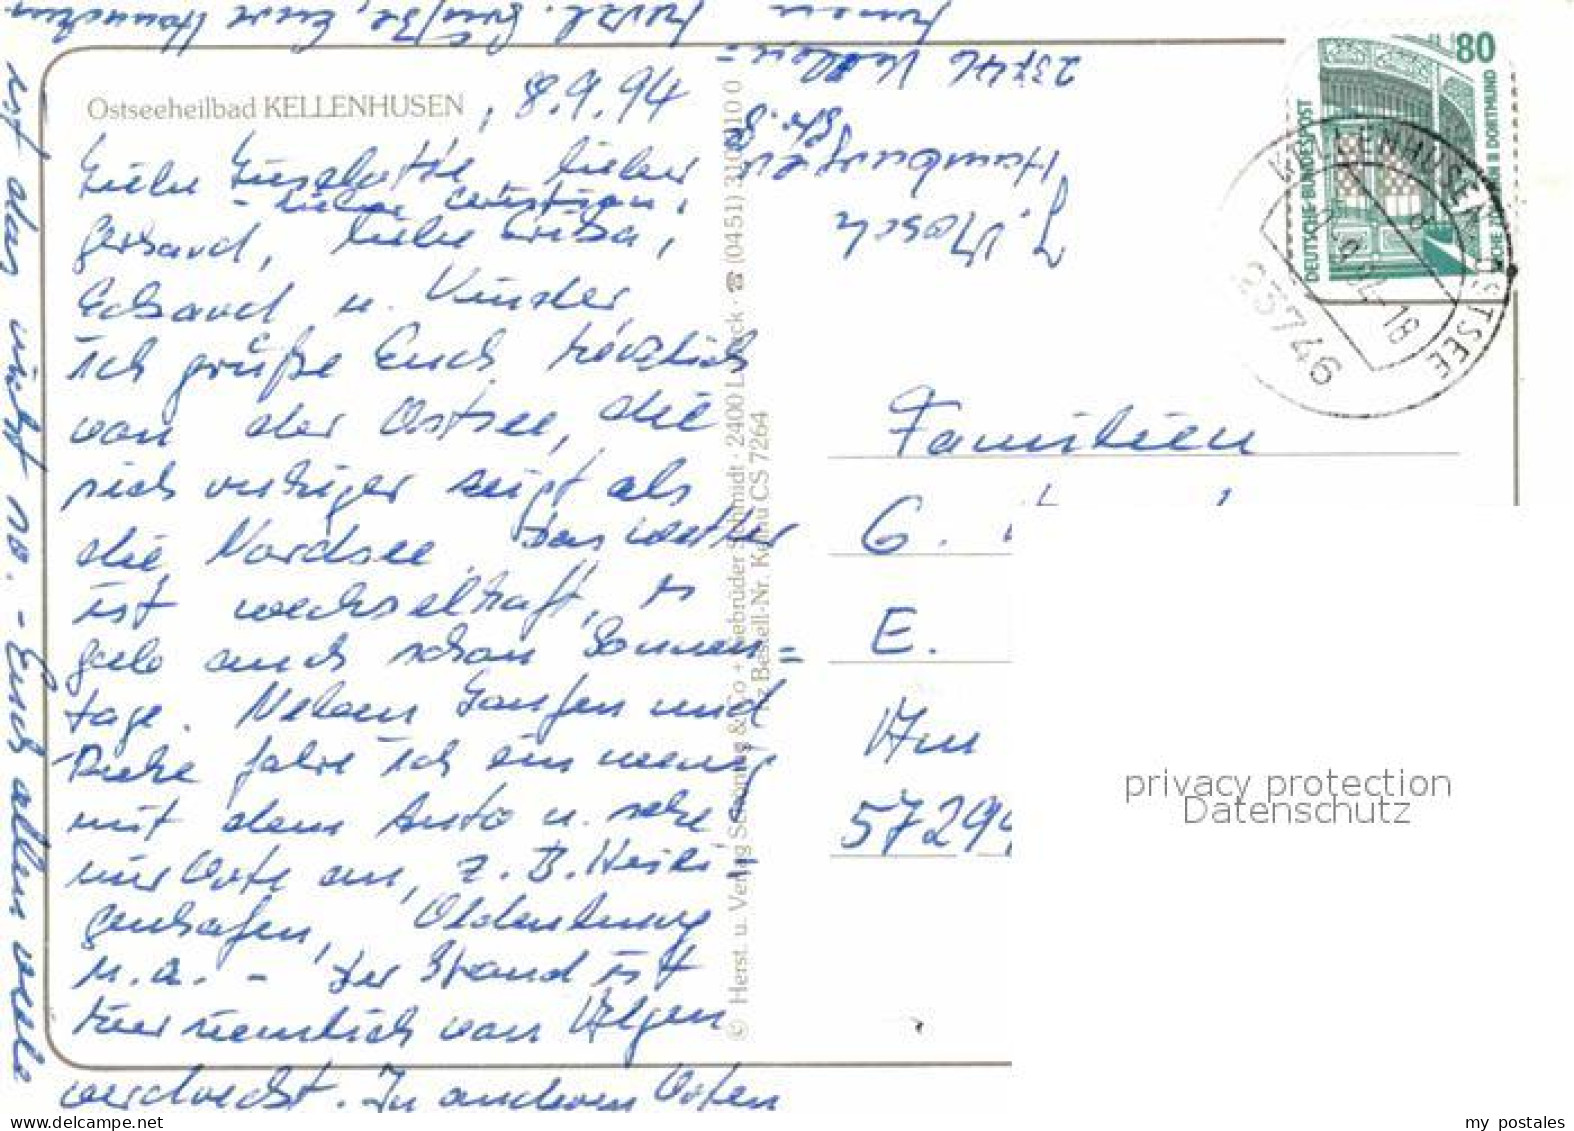 Ostseeheilbad KELLENHUSEN, 8.9.94
Liebe Lieselotte, lieber
- lieber Christian,
Gerhard, liebe Christa,
Eckhard u. Kinder,
ich grüße Euch herzlich
von der Ostsee, die
sich ruhiger zeigt als
die Nordsee. Das Wetter
ist wechselhaft, es
gab auch schon Sonnen=
tage. Neben Laufen und
Ruhe fahre ich ein wenig
mit dem Auto u. sehe
mir Orte an, z. B. Heili-
genhafen, Oldenburg
u. a. - Der Strand ist
hier ziemlich von Algen
verdreckt. In anderen Orten
ist das nicht so. - Euch allen viele
herzl. Grüße, Eure
23746 Kellen=
Hamburger
Str.
J.
© Herst. u. Verlag Schöning & Co + Gebrüder Schmidt · 2400 Lübeck · ☎ (0451) 31 03 10 0
Bestell-Nr. CS 7264
80
DEUTSCHE BUNDESPOST
DORTMUND
KELLENHUSEN OSTSEE
-18
23746
Familien
G.
E.
57299
privacy protection
Datenschutz
my postales